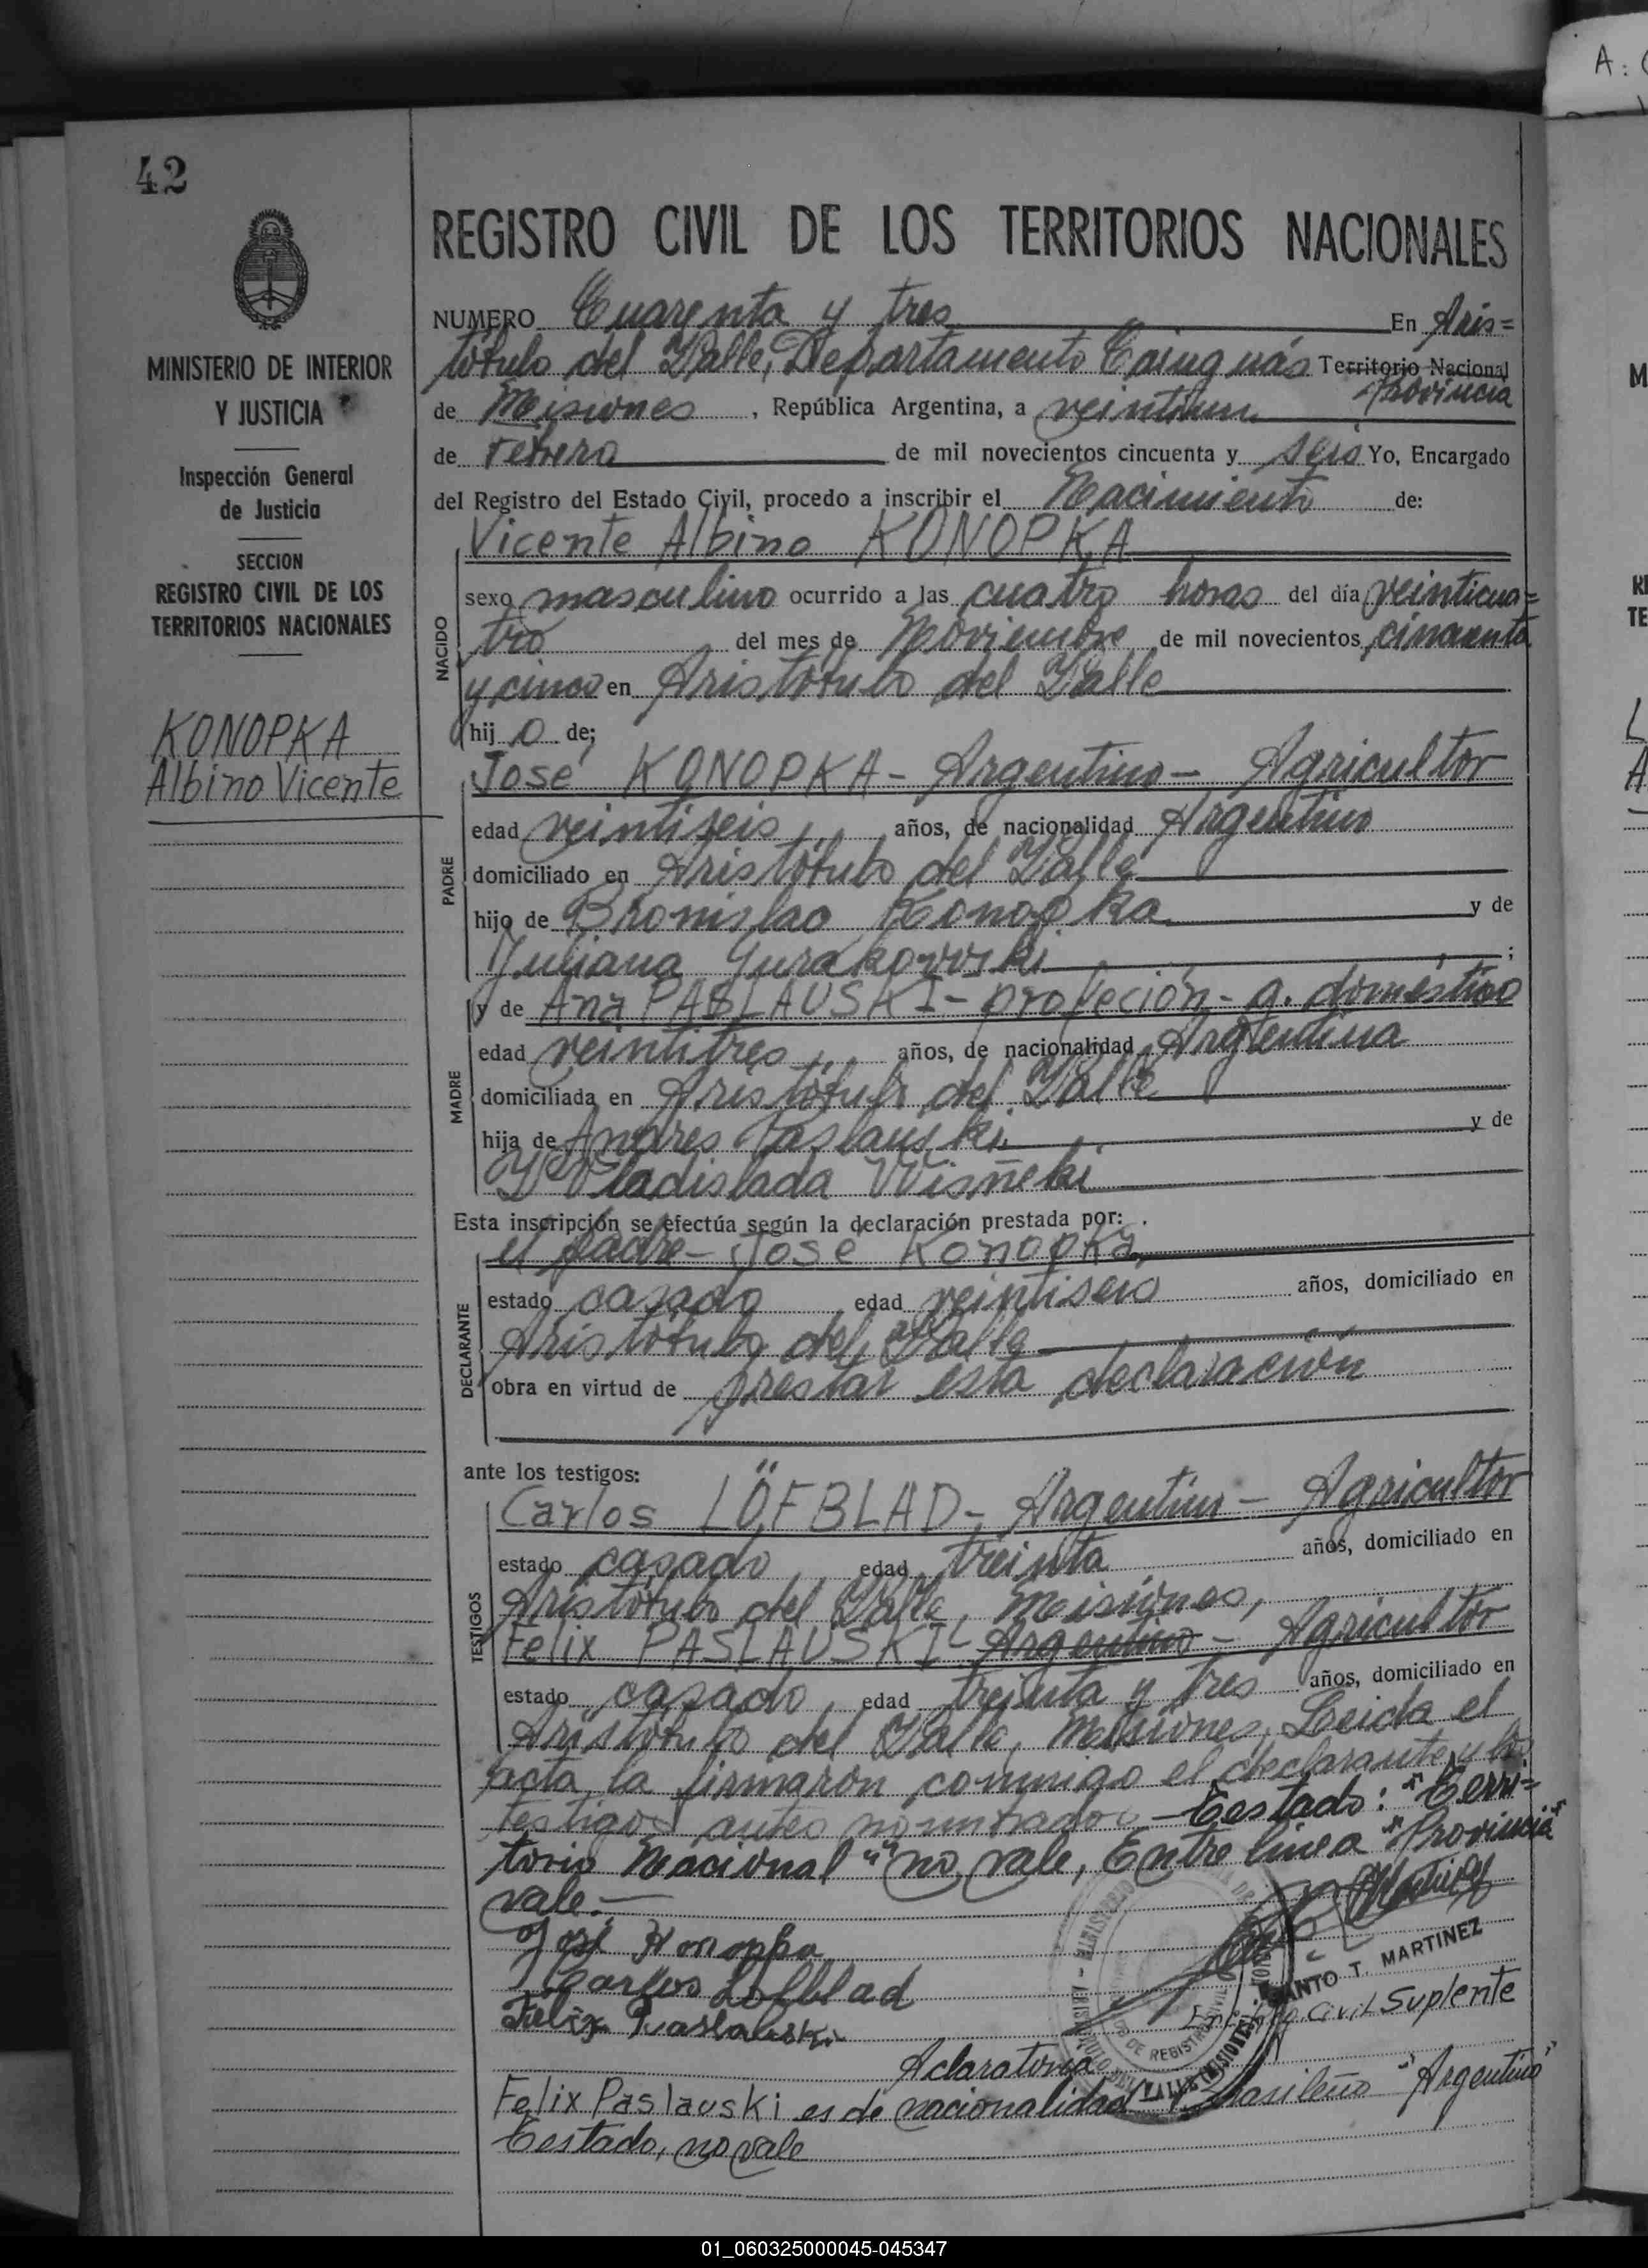 42
MINISTERIO DE INTERIOR
Y JUSTICIA
Inspección General
de Justicia
SECCION
REGISTRO CIVIL DE LOS
TERRITORIOS NACIONALES
KONOPKA
Albino Vicente
REGISTRO CIVIL DE LOS TERRITORIOS NACIONALES
NUMERO Cuarenta y tres En Aris=
tóbulo del Valle, Departamento Cainguás Territorio Nacional
Provincia
de Misiones , República Argentina, a veintiun
de Febrero de mil novecientos cincuenta y seis Yo, Encargado
del Registro del Estado Civil, procedo a inscribir el Nacimiento de:
NACIDO
Vicente Albino KONOPKA
sexo masculino ocurrido a las cuatro horas del día veinticua=
tro del mes de Noviembre de mil novecientos cincuenta
y cinco en Aristóbulo del Valle
hij o de;
PADRE
José KONOPKA - Argentino - Agricultor
edad veintiseis, años, de nacionalidad Argentino
domiciliado en Aristóbulo del Valle
hijo de Bronislao Konopka y de
Juliana Yurakovski ;
MADRE
y de Ana PASLAUSKI - profeción - q. doméstico
edad veintitres, años, de nacionalidad Argentina
domiciliada en Aristóbulo del Valle
hija de Andres Paslauski y de
Vladislada Wisñeki
Esta inscripción se efectúa según la declaración prestada por:
DECLARANTE
el padre - José Konopka,
estado casado edad veintiseis años, domiciliado en
Aristóbulo del Valle
obra en virtud de prestar esta declaración
ante los testigos:
TESTIGOS
Carlos LÖFBLAD - Argentino - Agricultor
estado casado, edad treinta años, domiciliado en
Aristóbulo del Valle, Misiones,
Felix PASLAUSKI - Argentino - Agricultor
estado casado, edad treinta y tres años, domiciliado en
Aristóbulo del Valle, Misiones, Leida el
acta, la firmaron conmigo el declarante y los
testigos antes nombrados - Testado: "Terri=
torio Nacional" no vale, Entre linea "Provincia"
vale. -
José Konopka
Carlos Lofblad
Felix Paslauski
SANTO T. MARTINEZ
Civil Suplente
Aclaratoria
Felix Paslauski es de nacionalidad Brasileño "Argentino"
Testado, no vale
01_060325000045-045347